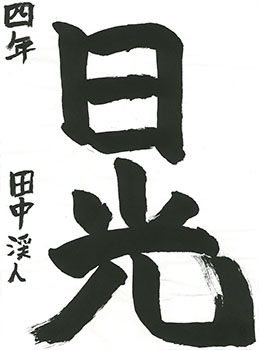 日光
四年 田中渓人